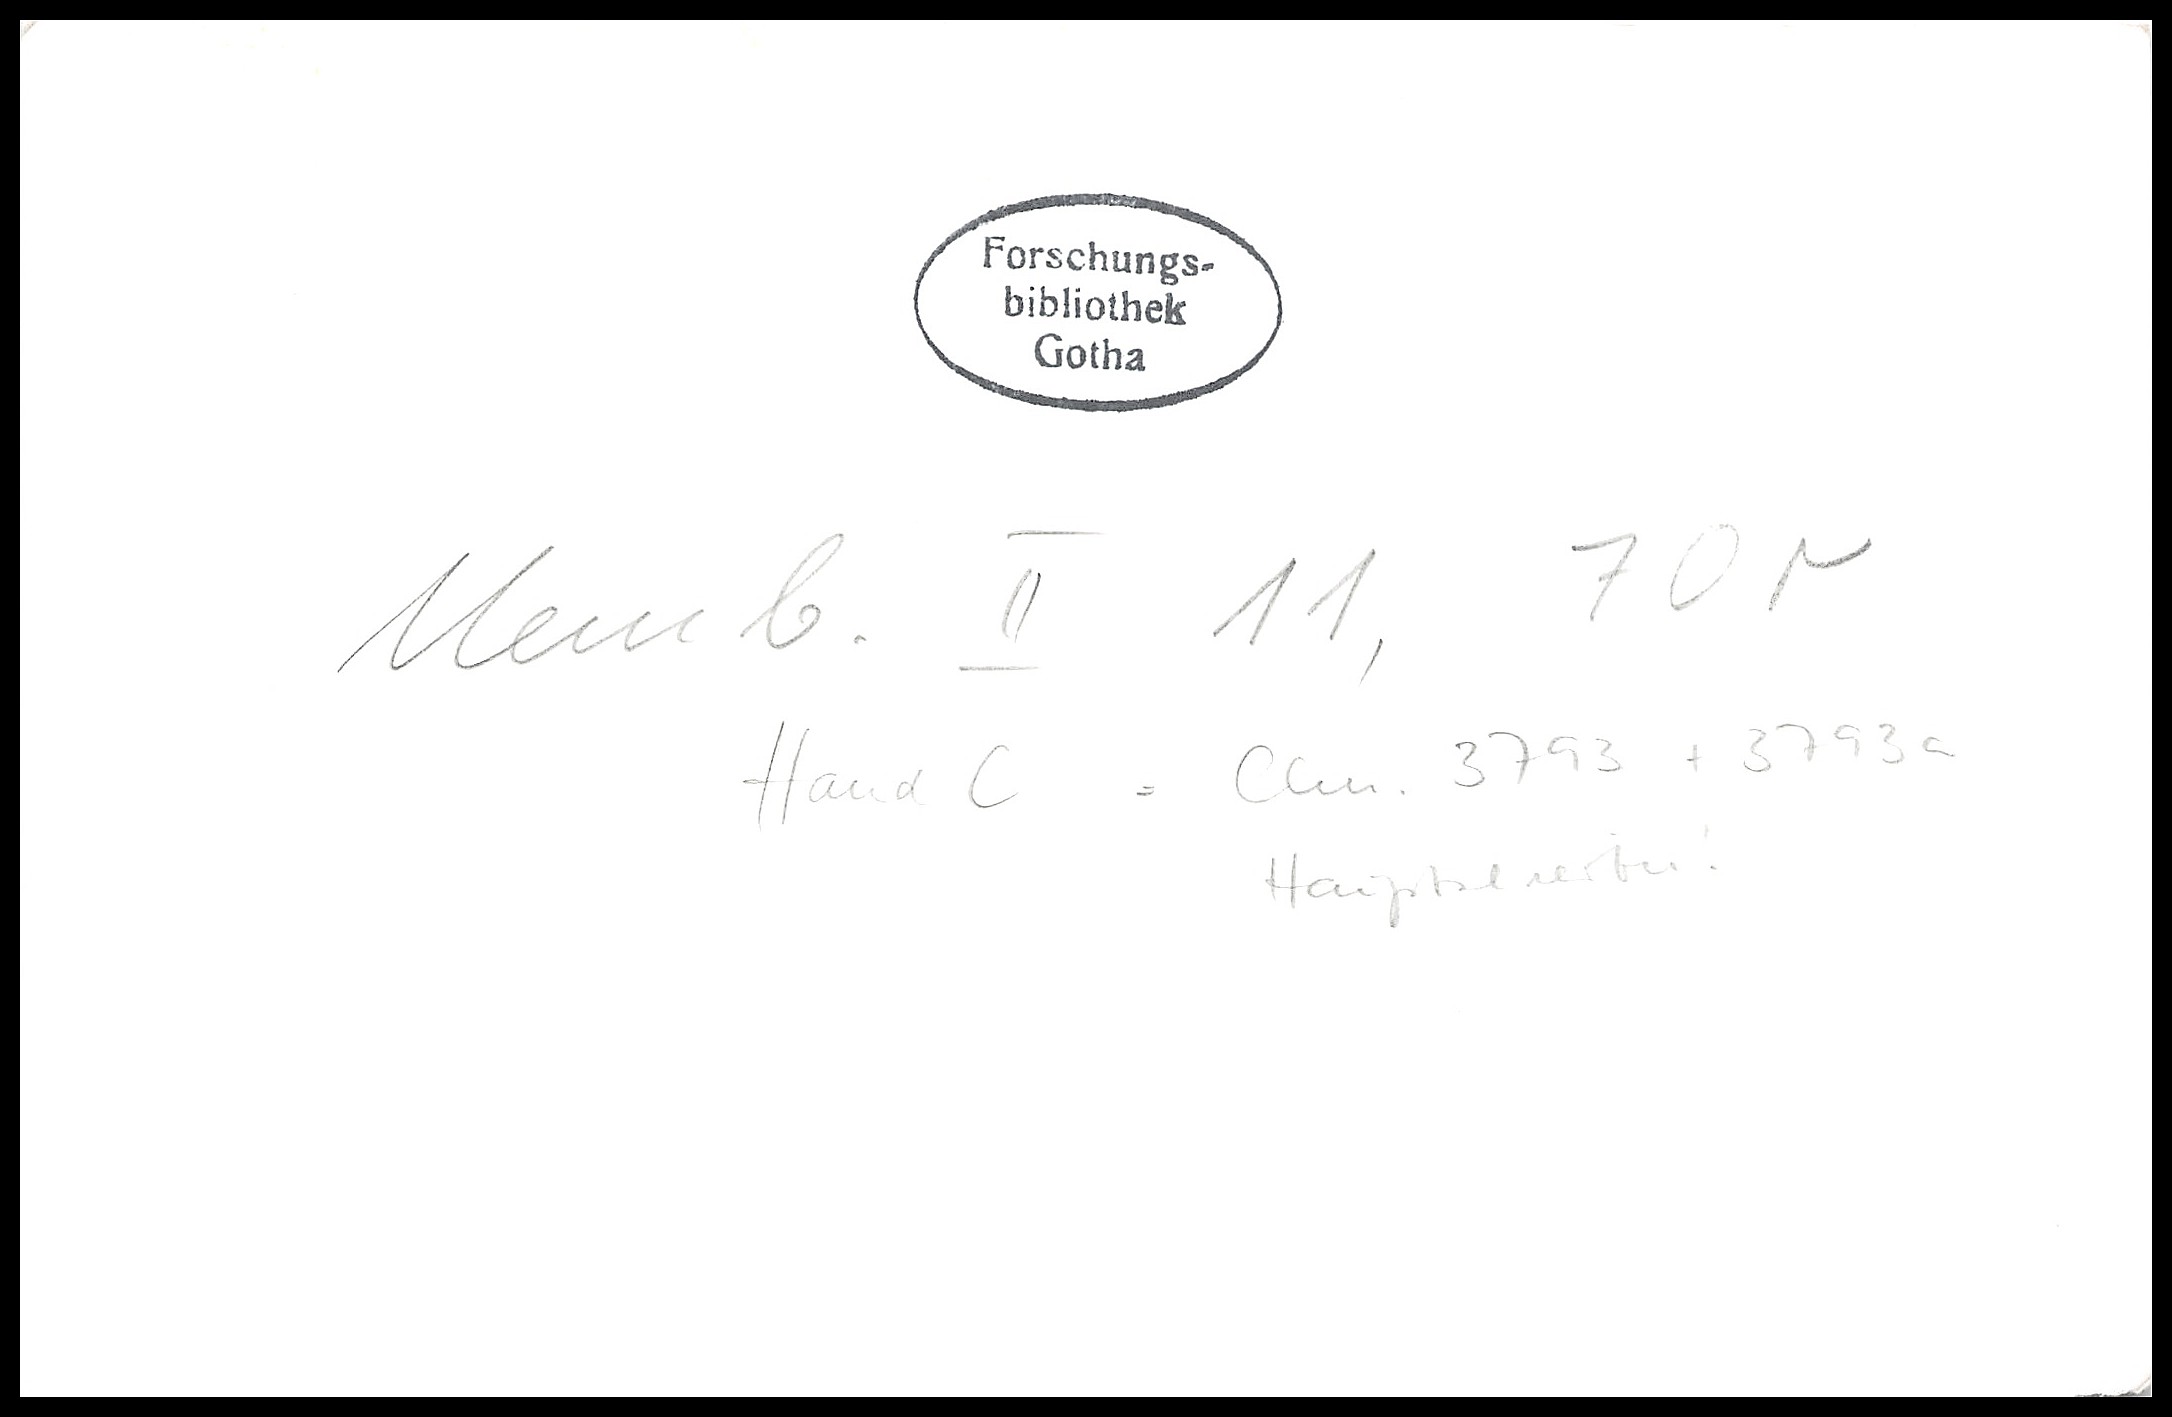 Forschungs-
bibliothek
Gotha
Memb. II 11, 70r
Hand C = Clm. 3793 + 3793a
Hauptschreiber!